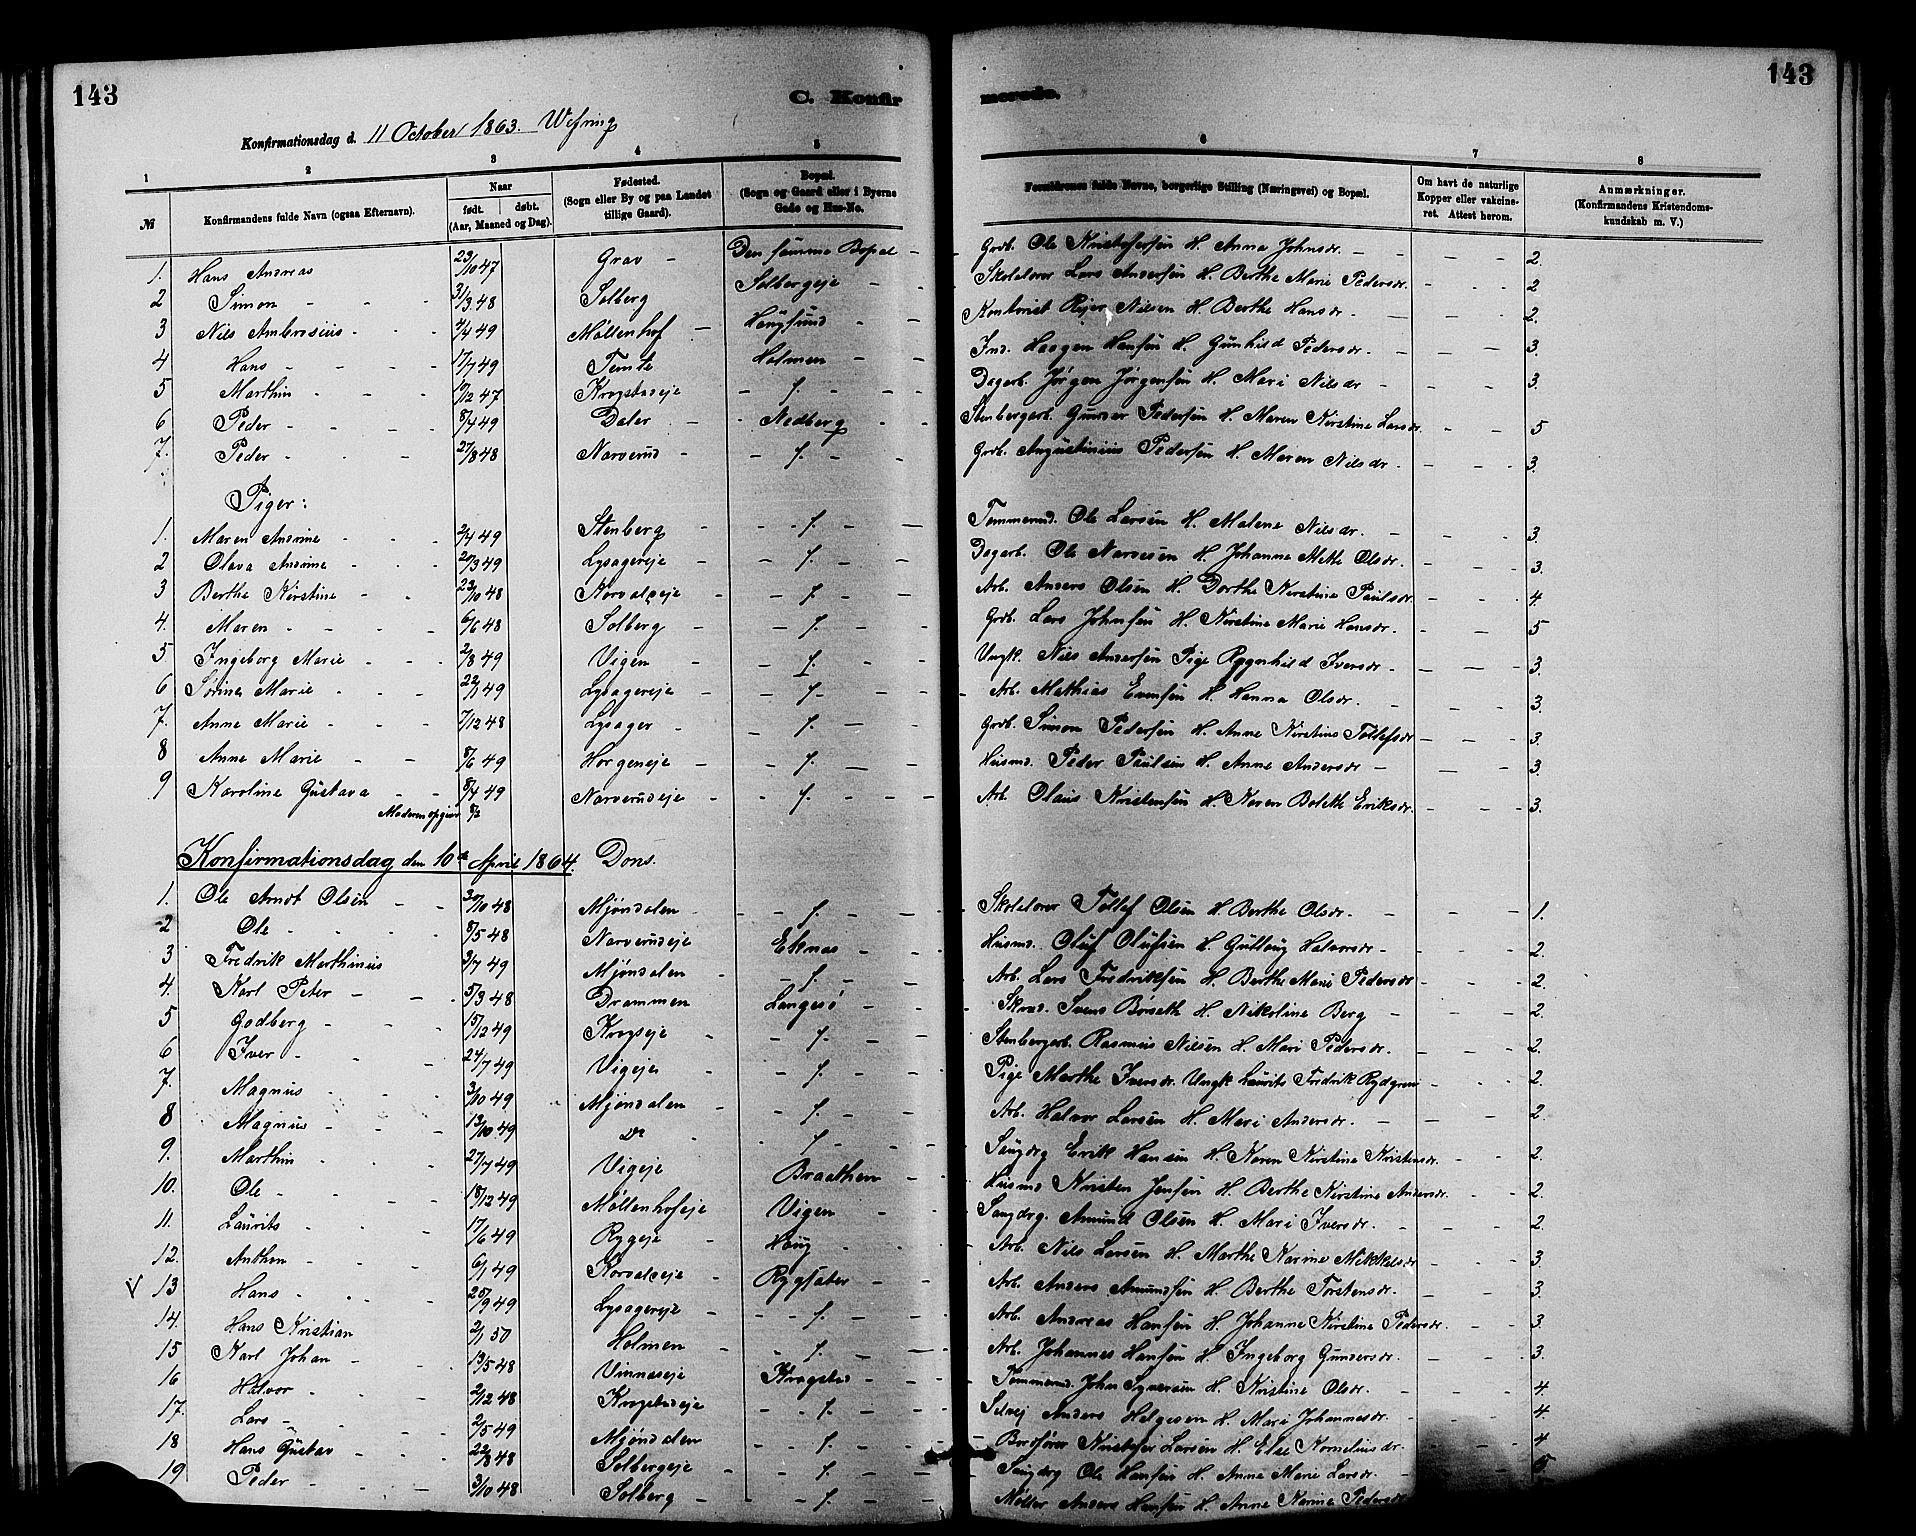 143
C. Konfir
merede.
143
Konfirmationsdag d. 11 October 1863. Wefring
1 2 3 4 5 6 7 8
№ Konfirmandens fulde Navn (ogsaa Efternavn). Naar født. døbt. (Aar, Maaned og Dag). Fødested. (Sogn eller By og paa Landet tillige Gaard). Bopæl. (Sogn og Gaard eller i Byerne Gade og Hus-No. Forældrenes fulde Navne, borgerlige Stilling (Næringsvei) og Bopæl. Om havt de naturlige Kopper eller vakcineret. Attest herom. Anmærkninger. (Konfirmandens Kristendomskundskab m. V.)
1. Hans Andreas 23/10 47 Grav - Den samme Bopæl - Grdb. Ole Kristofersen H. Anna Johnsdr. - 2.
2 Simon 31/3 48 Solberg Solbergeje Skolelærer Lars Andersen H. Berthe Marie Pedersdr. 2
3 Nils Ambrosius 4/4 49 Møllenhof Hougsund Kontorist Rejer Nilsen H. Berthe Hansdr. 2.
4 Hans 17/7 49 Temte Holmen Ind. Haagen Hansen H. Gunhild Pedersdr. 3.
5 Marthin 19/12 47 Krogstadeje f. Dagarb. Jørgen Jørgensen H. Mari Nilsdr 3.
6 Peder 8/4 49 Daler Nedberg Stenbergarb. Gunder Pedersen H. Maren Kirstine Larsdr. 5
7. Peder 27/8 48 Narverud f. Grdb. Augustinius Pedersen H. Maren Nilsdr. 3.
Piger:
1. Maren Andrine 2/4 49 Stenberg f. Tømmermd. Ole Larsen H. Malene Nilsdr. 3.
2 Olava Andrine 20/3 49 Lysagereje f. Dagarb. Ole Narvesen H. Johanne Mette Olsdr. 3.
3 Berthe Kirstine 23/10 48 Korvaldeje f. Arb. Anders Olsen H. Dorthe Kirstine Paulsdr. 4.
4. Maren 6/6 48 Solberg f. Grdb. Lars Johnsen H. Kirstine Marie Hansdr. 5
5 Ingeborg Marie 2/8 49 Vigen f. Ungk. Nils Andersen Pige Ragnhild Iversdr. 3.
6 Sørine Marie 22/1 49 Lysagereje f. Arb. Mathias Evensen H. Hanna Olsdr. 3.
7. Anne Marie 7/12 48 Lysager f. Grdb. Simon Pedersen H. Anne Kirstine Tollefsdr 3.
8 Anne Marie 8/6 49 Horgeneje f. Husmd. Peder Paulsen H. Anne Andersdr 3.
9 Karoline Gustava 8/4 49 Narverudeje f. Arb. Olaus Kristensen H. Karen Bolette Eriksdr. 3.
Moderen opgiver 8/3
Konfirmationsdag den 10de April 1864. Dons.
1. Ole Arndt Olsen 30/10 48 Mjøndalen f. Skolelærer Tollef Olsen H. Berthe Olsdr. 1.
2 Ole 8/5 48 Narverudeje Eknæs Husmd. Oluf Olufsen H. Gullaug Halvorsdr 2.
3 Fredrik Marthinius 3/7 49 Mjøndalen f. Arb. Lars Fredriksen H. Berthe Marie Pedersdr 2.
4. Karl Peter 5/3 48 Drammen Langesø Skrd. Svend Børseth H. Nikoline Berg 2.
5 Godberg 15/12 49 Krogseje f. Stenbergarb. Rasmus Nilsen H. Mari Pedersdr. 2.
6 Iver 24/7 49 Vigeje f. Pige Marthe Iversdr. Ungk Laurits Fredrik Rydgren 2.
7. Magnus 3/10 49 Mjøndalen f. Arb. Halvor Larsen H. Mari Andersdr. 2.
8 Magnus 13/10 49 Do f. Saugdrg Erik Hansen H. Karen Kirstine Kristensdr. 2.
9. Marthin 27/7 49 Vigeje Braathen Husmd Kristen Jensen H. Berthe Kirstine Andersdr. 2.
10. Ole 18/12 49 Møllenhofeje Vigen Saugdrg. Amund Olsen H. Mari Iversdr. 2.
11. Laurits 17/6 49 Rygeje Houg Arb. Nils Larsen H. Marthe Karine Mikkelsdr 3.
12. Anthon 6/1 49 Korvaldeje Rygsæter Arb. Anders Amundsen H. Berthe Torstensdr. 3.
V 13 Hans 20/9 49 Lysagereje f. Arb. Andreas Hansen H. Johanne Kirstine Pedersdr. 3.
14. Hans Kristian 2/1 50 Holmen f. Arb. Johannes Hansen H. Ingeborg Gundersdr. 3.
15 Karl Johan 13/5 48 Vinnæseje Krogstad Tømmermd. John Syversen H. Kirstine Olsdr. 4.
16 Halvor 2/12 48 Krogstadeje f. Selvej Anders Helgesen H. Mari Johannesdr. 4.
17. Lars 2/5 49 Mjøndalen f. Brofører Kristofer Larsen H. Else Korneliusdr. 4
18 Hans Gustav 22/8 48 Solbergeje f. Saugdrg Ole Hansen H. Anne Marie Larsdr. 5.
19 Peder 3/10 48 Solberg f. Møller Anders Hansen H. Anne Karine Pedersdr